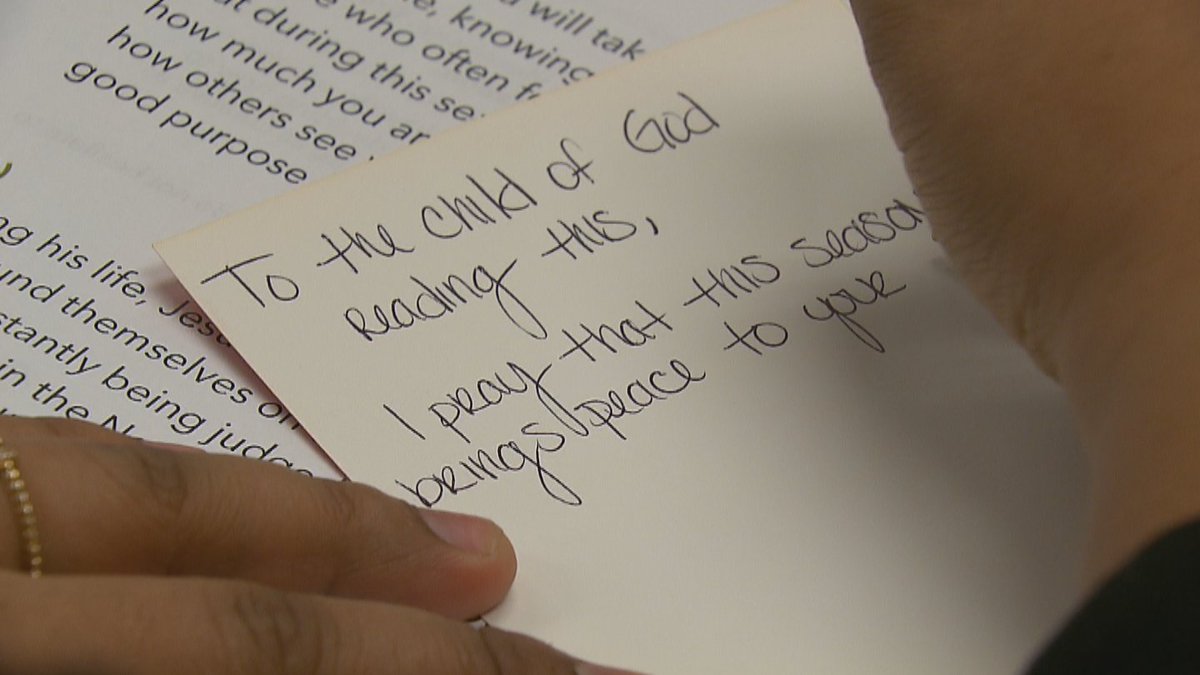 d will tak
e, knowing
e who often f
t during this se
how much you ar
how others see
good purpose
ng his life, Jesu
und themselves on
stantly being judge
in the N
To the child of God
reading this,
I pray that this season
brings peace to your